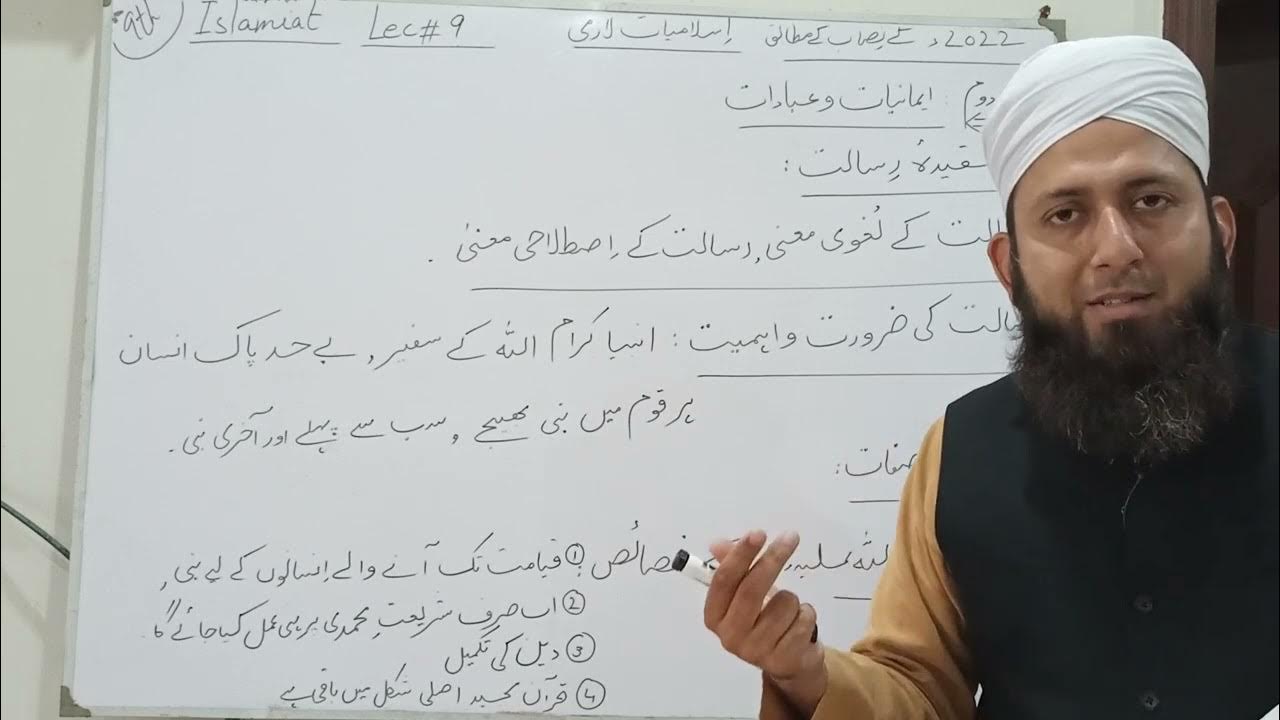 9th Islamiat Lec# 9 اِسلامیات لازمی 2022ء کے نصاب کے مطابق
دوم : ایمانیات و عبادات
عقیدۂ رِسالت :
کے لُغوی معنی, رسالت کے اِصطلاحی معنیٰ .
کی ضرورت و اہمیت : انبیا کرام اللہ کے سفیر, بے حد پاک انسان
ہر قوم میں نبی بھیجے , سب سے پہلے اور آخری نبی .
صفات :
خصائص : ① قیامت تک آنے والے اِنسانوں کے لیے نبی,
② اب صرف شریعتِ محمدی پر ہی عمل کیا جائے گا.
③ دین کی تکمیل
④ قرآن مجید اصلی شکل میں باقی ہے